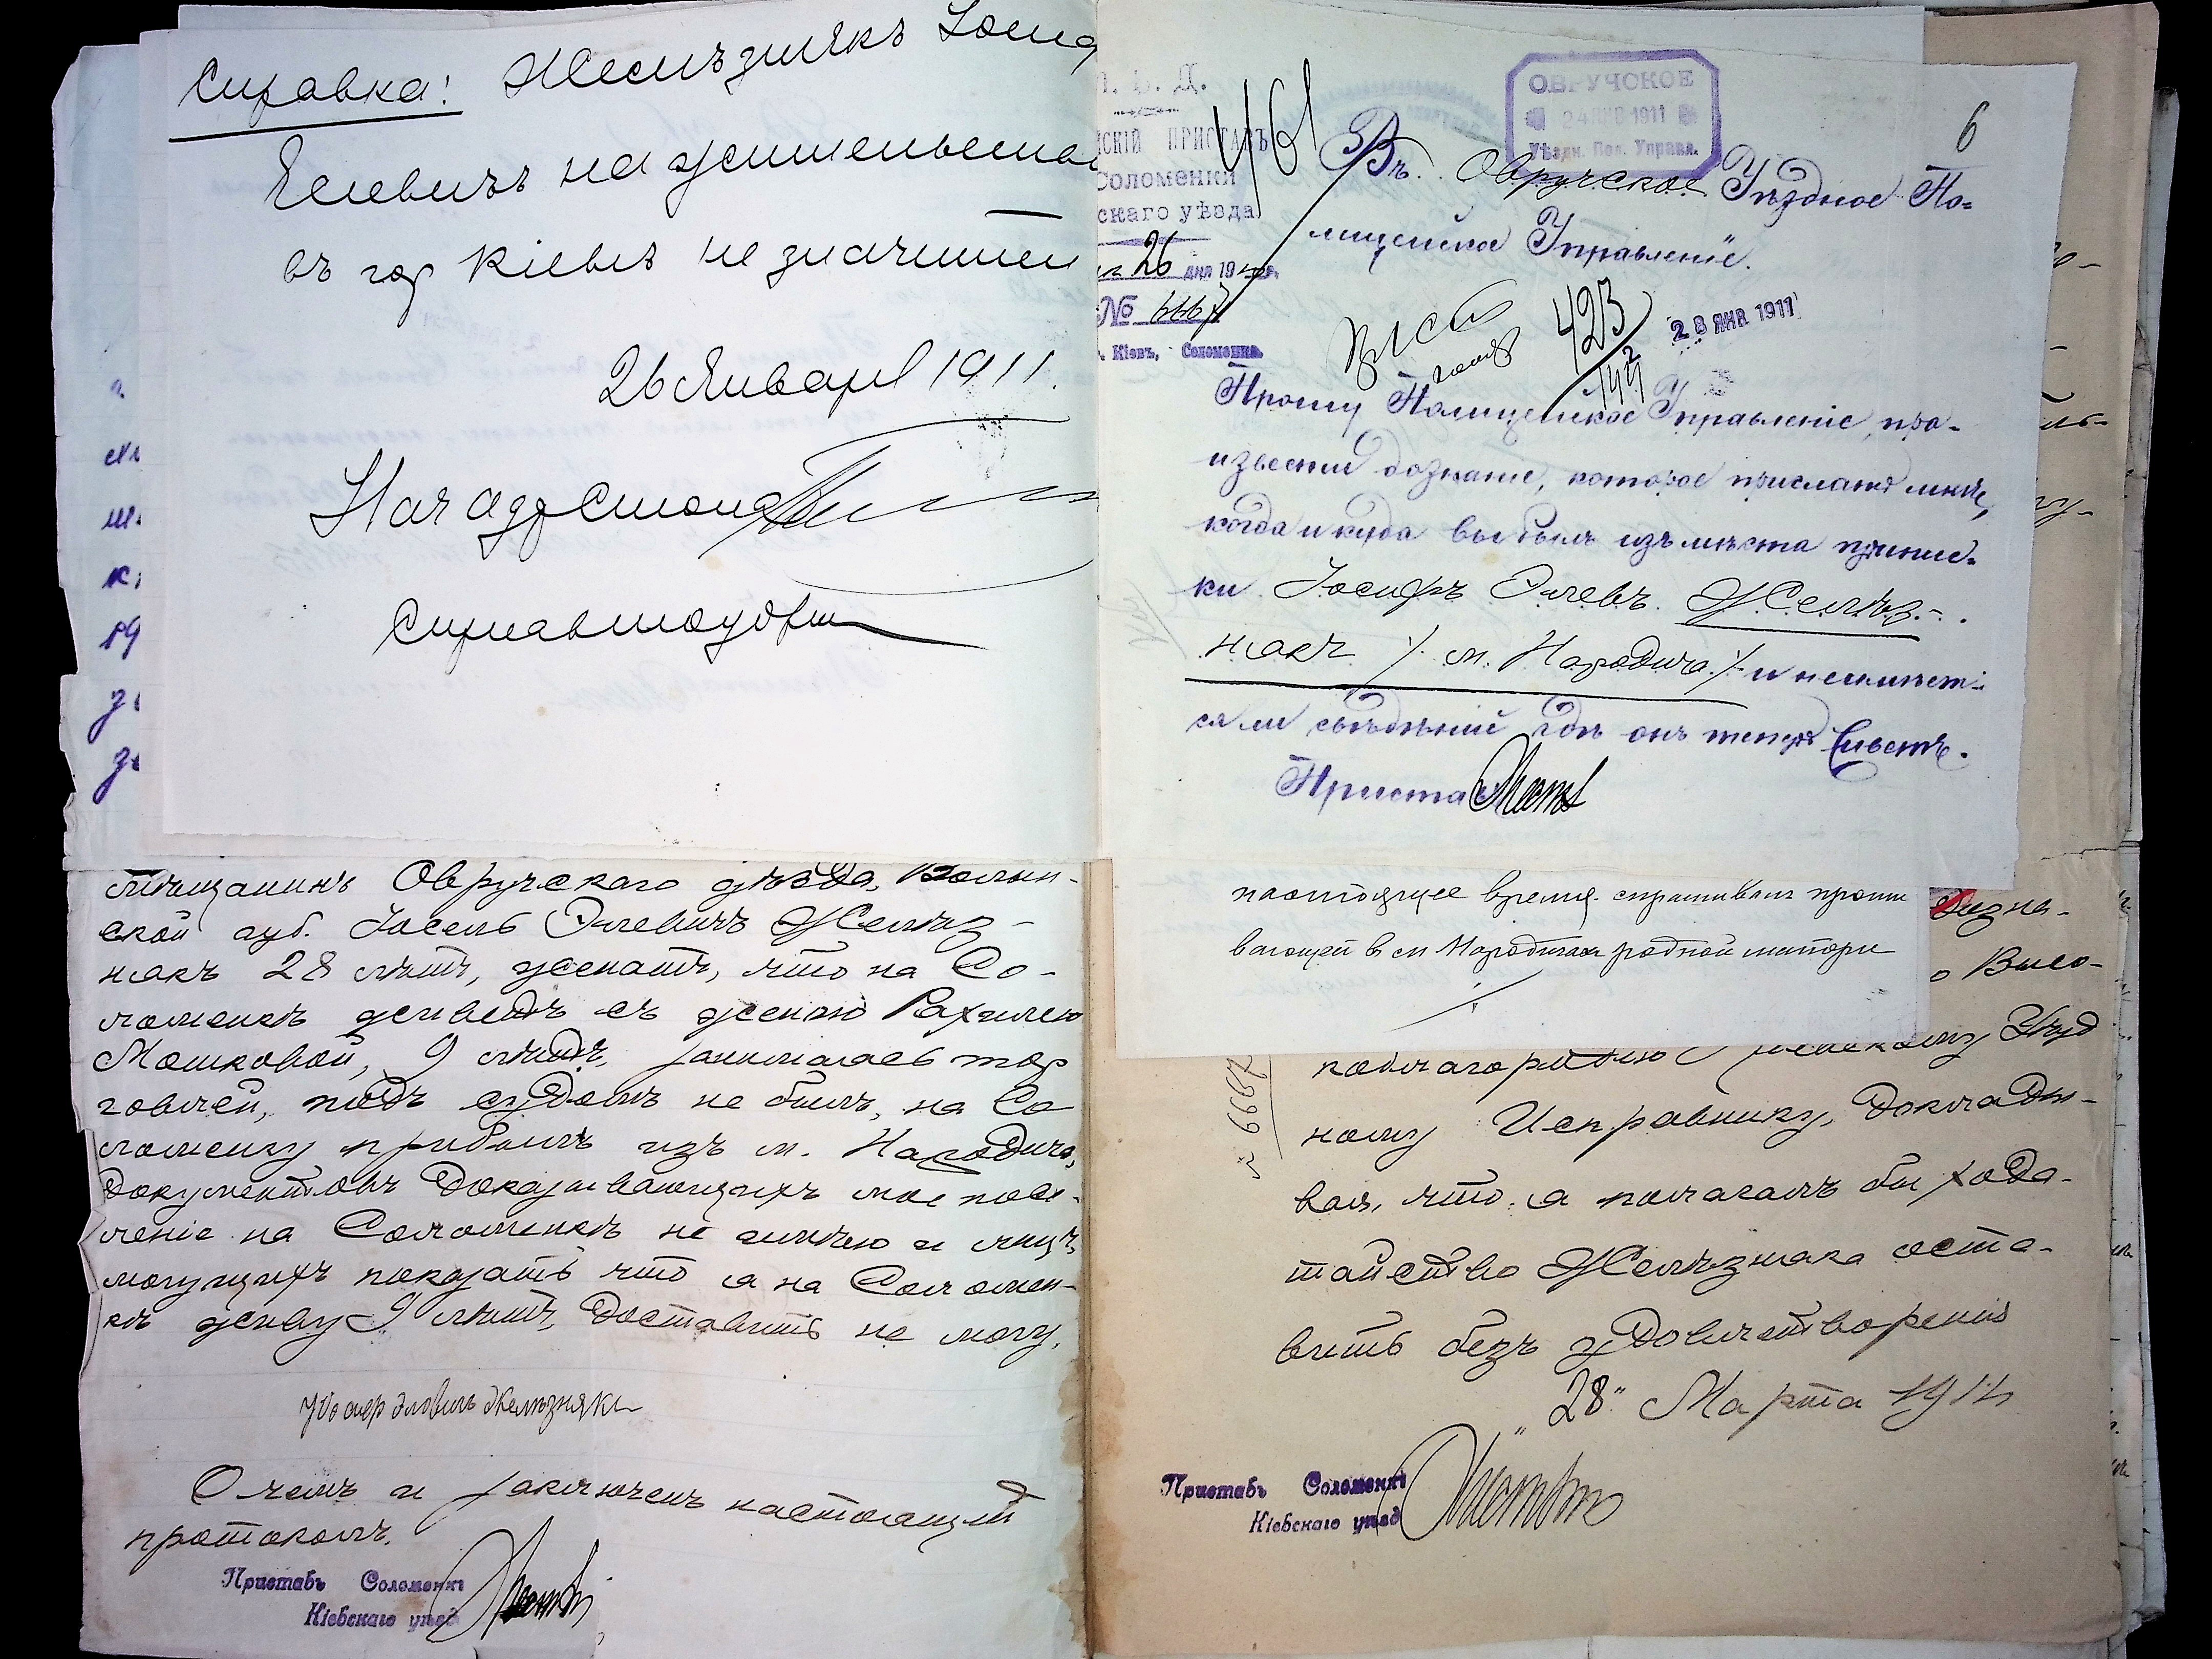 Справка: Желѣзнякъ Іосиф
Елевичъ на жительствѣ
въ гор Кіевѣ не значится
26 Января 1911.
Нач адр Стола
ОВРУЧСКОЕ
24 ЯНВ 1911
Уѣздн. Пол. Управл.
6
461
СКІЙ ПРИСТАВЪ
Соломенки
скаго уѣзда
26 дня 19
№ 6667
г. Кіевъ, Соломенка.
Въ Овручское Уѣздное По-
лицейское Управленіе.
423
28 ЯНВ 1911
Прошу Полицейское Управленіе, про-
извести дознаніе, которое прислать мнѣ,
когда и куда выбылъ изъ мѣста припис-
ки Іосифъ Элевъ Желѣз-
някъ /м. Народичъ/ и не имѣет-
ся ли свѣдѣній гдѣ онъ теперь живетъ.
Приставъ
мѣщанинъ Овручскаго уѣзда, Волын-
ской губ. Іосель Элевичъ Желѣз-
някъ 28 лѣтъ, женатъ, что на Со-
ломенкѣ живетъ съ женою Рахилею
Мошковой, 9 лѣтъ, занимаясь тор
говлей, подъ судомъ не былъ, на Со
ломенку прибылъ изъ м. Народичъ,
документовъ доказывающихъ мое посе-
леніе на Соломенкѣ не имѣю и лицъ,
могущихъ показать что я на Соломен-
кѣ живу 9 лѣтъ, доставить не могу.
Іосиф Элевичъ Желѣзнякъ
О чемъ и заключенъ настоящій
протоколъ.
Приставъ Соломенки
Кіевскаго уѣзд
настоящее время спрашивали прожи
вающей в м Народичах родной матери
Дозна-
о Высо-
коблагородію Кіевскому Уѣзд
ному Исправнику, докладывая-
вая, что я полагалъ бы хода-
тайство Желѣзняка оста-
вить безъ удовлетворенія
"28" Марта 1911
№ 6667
Приставъ Соломенки
Кіевскаго уѣзд